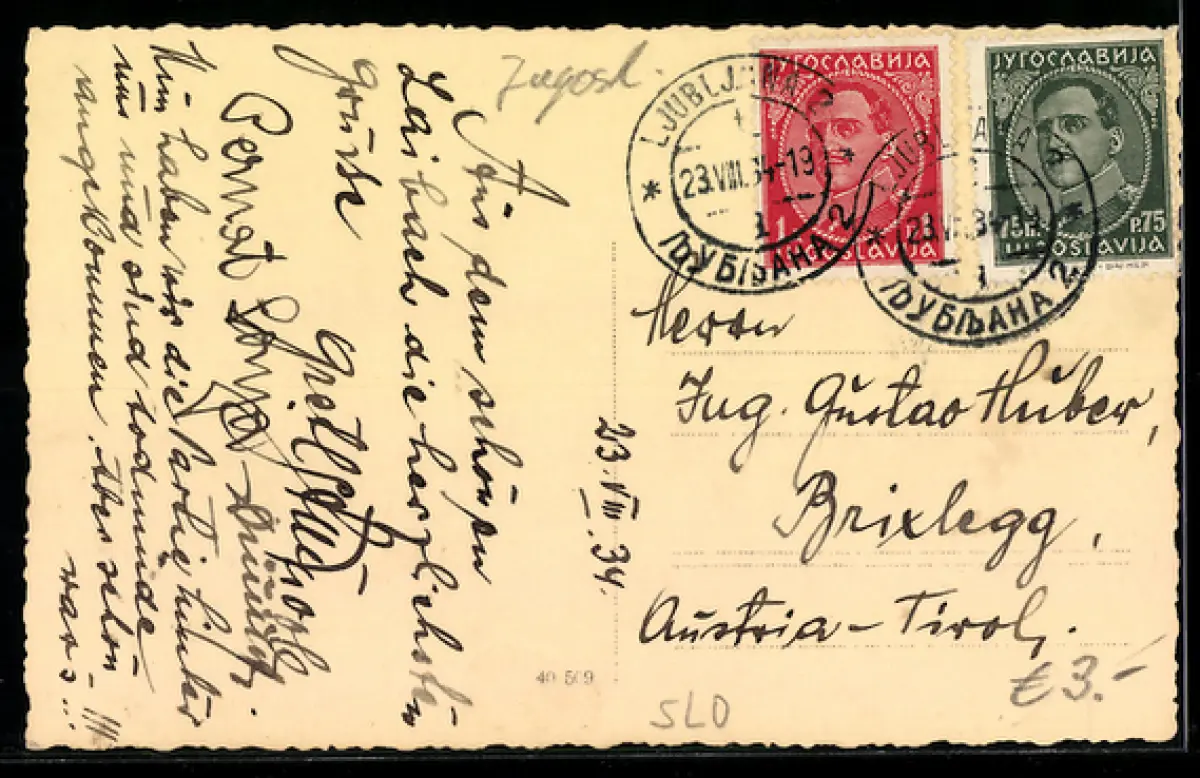 Jugosl.
Aus dem schönen
Laibach die herzlichsten
Grüße
Gretl
Nun haben wir die Partie hinter
uns und sind todmüde
angekommen. Aber schön –
war's...
23.VIII.34.
40 509
ЈУГОСЛАВИЈА
1
JUGOSLAVIJA
ЈУГОСЛАВИЈА
75П. P.75
JUGOSLAVIJA
LJUBLJANA 2
23.VIII.34-19
ЉУБЉАНА 2
LJUBLJANA 2
23.VIII.34-19
ЉУБЉАНА 2
Herrn
Ing. Gustav Huber,
Brixlegg,
Austria – Tirol.
SLO
€ 3.-